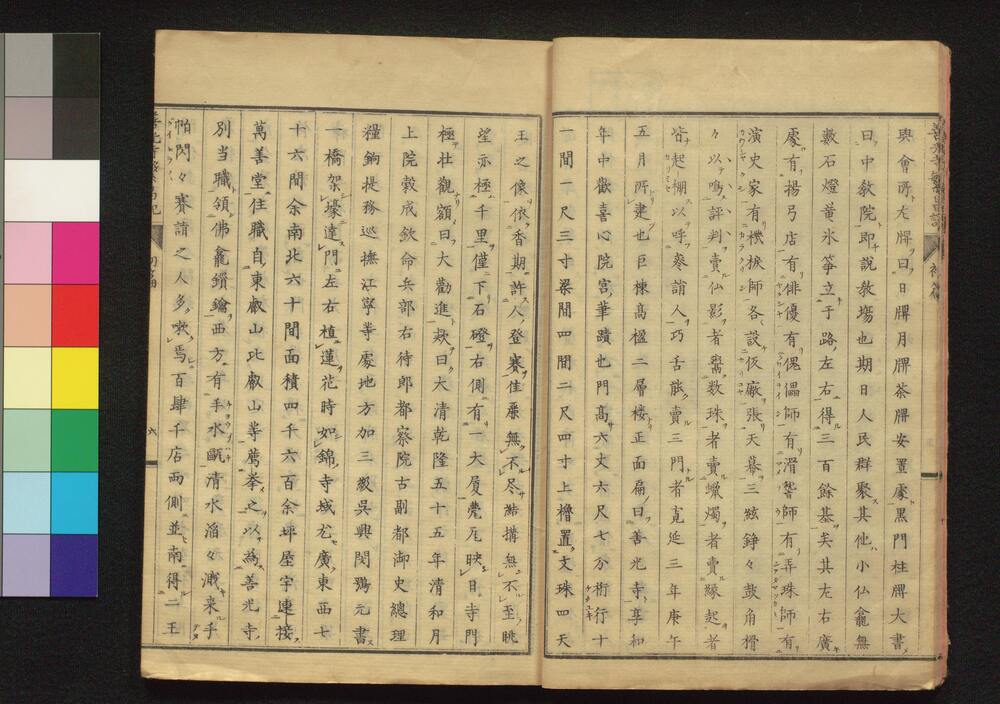 與會所左牌曰日牌月牌茶牌安置處黒門柱牌大書
曰中敎院即說敎塲也期日人民群聚其他小仏龕無
數石燈黄氷筝立于路左右得三百餘基矣其左右廣
處有揚弓店有俳優有傀儡師有滑䜏師有弄珠師有
演史家有機捩師各設仮廠張天幕三絃錚々鼓角搰
々以鳴評判賣仙影者鬻数珠者賣蠟燭者賣縁起者
皆起棚以呼參詣人巧舌能賣三門者寛延三年庚午
五月所建也巨棟高楹二層楼正面扁曰善光寺享和
年中歡喜心院宮筆蹟也門高六丈六尺七分桁行十
一間一尺三寸梁間四間二尺四寸上櫓置文珠四天
王之像依香期許人登賽佳麗無不尽結搆無不至眺
望亦極千里僅下石磴右側有一大廈甍瓦映日寺門
極壮觀額曰大勸進欵曰大清乾隆五十五年清和月
上院穀戍欽命兵部右侍郎都察院右副都御史總理
糧餉提務巡撫江寧等處地方加三級吳興閔鶚元書
一橋架壕達門左右植蓮花時如錦寺域尤廣東西七
十六間余南北六十間面積四千六百余坪屋宇連接
萬善堂住職自東叡山比叡山等薦挙之以為善光寺
別当職領佛龕鑽鑰西方有手水甌清水滔々漑来手
帕閃々賽請之人多嗽焉百肆千店両側並南得二王
六